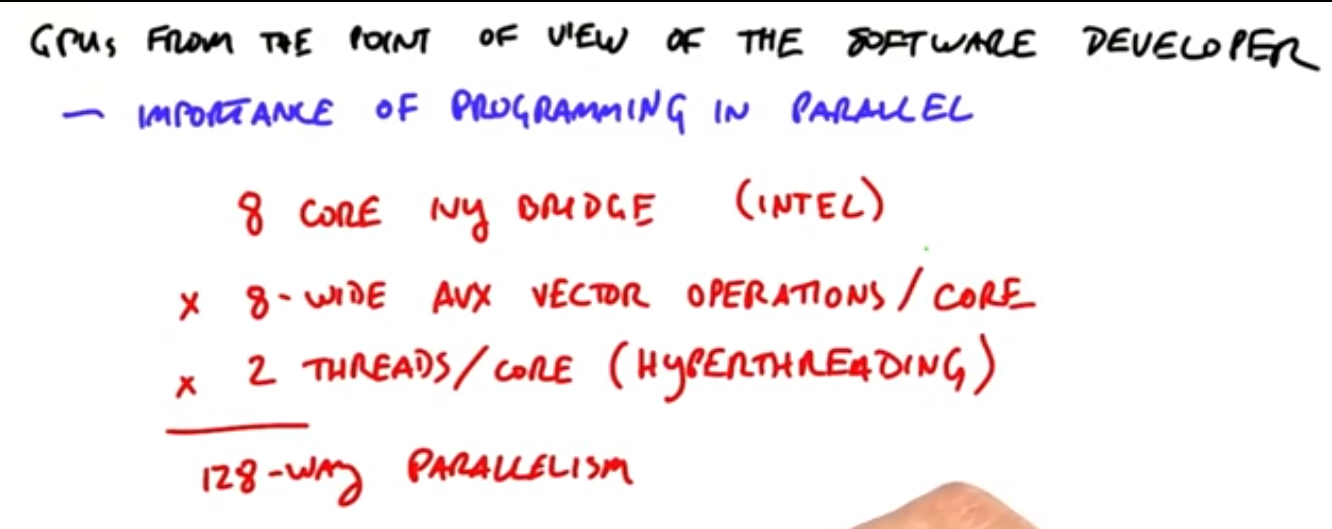 GPUs FROM THE POINT OF VIEW OF THE SOFTWARE DEVELOPER
- IMPORTANCE OF PROGRAMMING IN PARALLEL
8 CORE IVY BRIDGE (INTEL)
x 8-WIDE AVX VECTOR OPERATIONS/CORE
x 2 THREADS/CORE (HYPERTHREADING)
128-WAY PARALLELISM